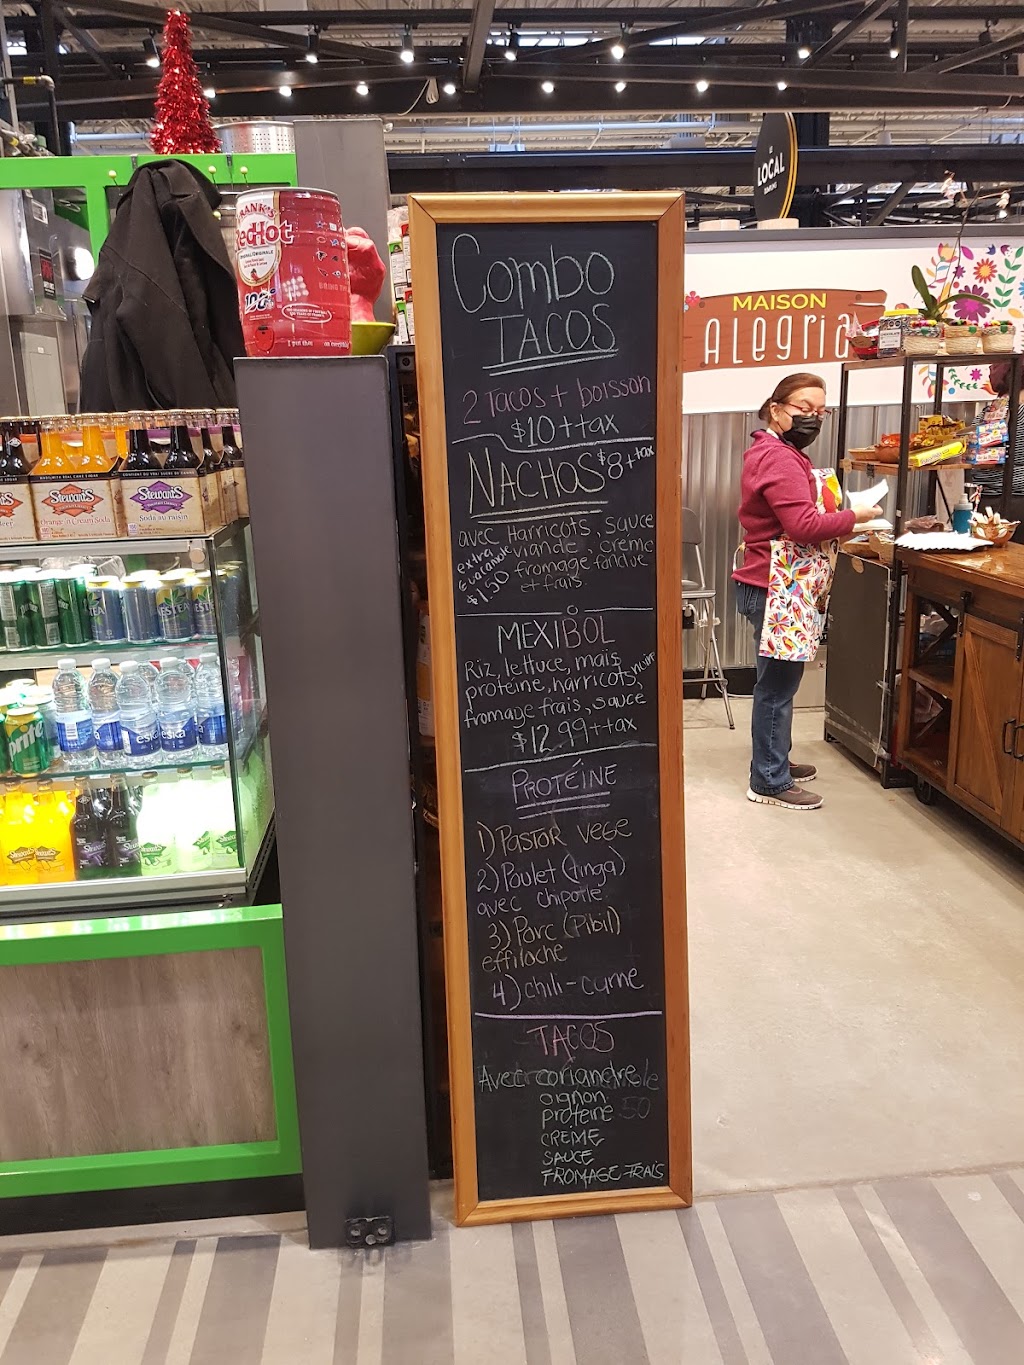 Combo
TACOS
2 Tacos + boisson
$10 + tax
NACHOS $8 + tax
avec Harricots, sauce
viande, crème
fromage fondue
et frais
extra
Guacamole
$1.50
MEXIBOL
Riz, lettuce, maïs
protéine, harricots noir
fromage frais, sauce
$12.99 + tax
PROTÉINE
1) PASTOR VEGE
2) Poulet (tinga)
avec chipotle
3) Porc (Pibil)
effiloche
4) chili-carne
TACOS
Avec coriandre
oignon
protéine 50
CRÈME
SAUCE
FROMAGE FRAIS
LE
LOCAL
MAISON
ALegria
FRANK'S
RedHot
Stewart's
Orange 'n Cream Soda
Stewart's
Soda au raisin
NESTEA
eska
sprite